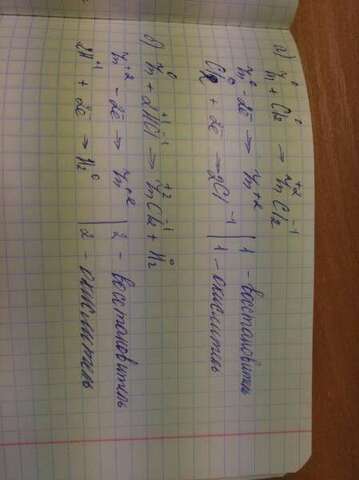 а) Zn⁰ + Cl₂⁰ → Zn⁺²Cl₂⁻¹
Zn⁰ - 2ē → Zn⁺² | 1 - восстановитель
Cl₂⁰ + 2ē → 2Cl⁻¹ | 1 - окислитель
б) Zn⁰ + 2H⁺¹Cl⁻¹ → Zn⁺²Cl₂⁻¹ + H₂⁰
Zn⁺² - 2ē → Zn⁺² | 2 - восстановитель
2H⁺¹ + 2ē → H₂⁰ | 2 - окислитель